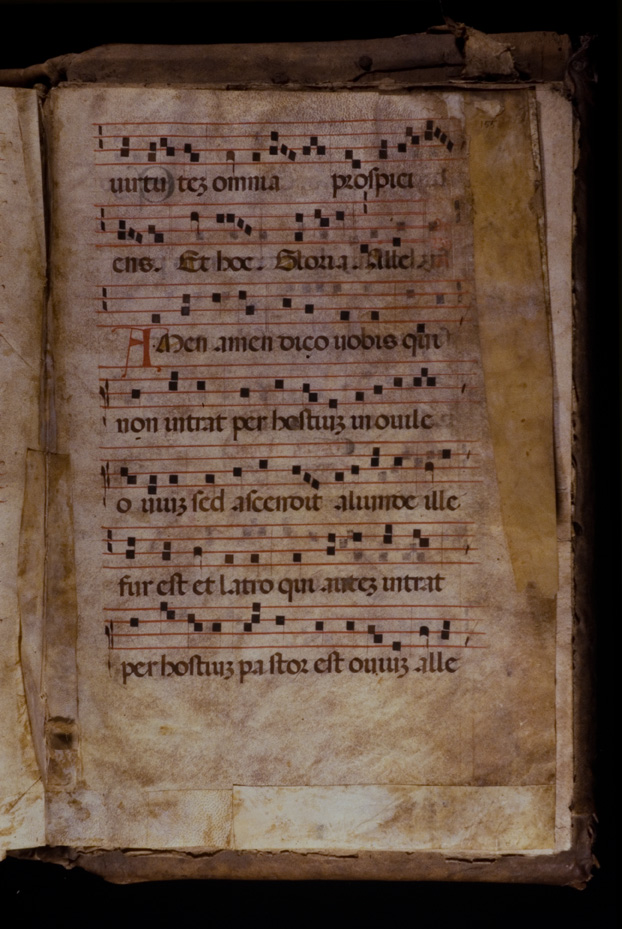 uirtu tez omnia prospici
ens. Et hoc. Gloria. Allel
AMen amen dico uobis qui
non intrat per hostiuz in ouile
o uiuz sed ascendit aliunde ille
fur est et latro qui autez intrat
per hostiuz pa stor est ouiuz alle